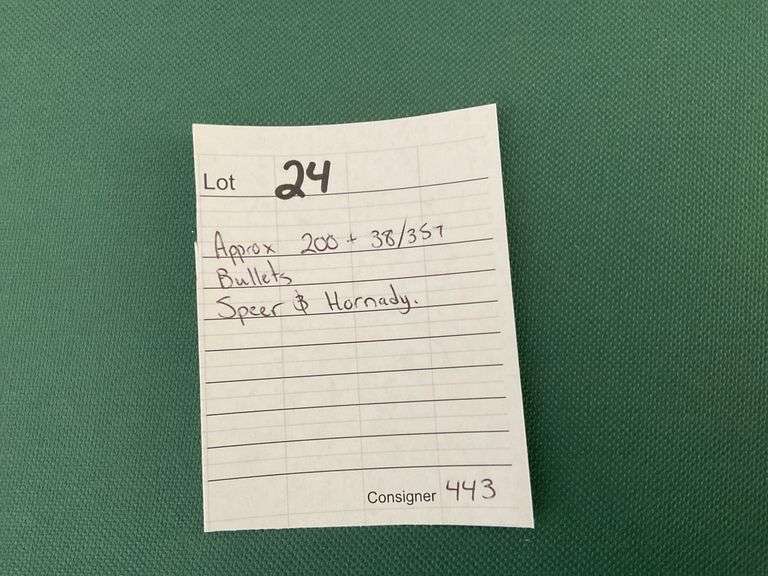 Lot 24
Approx 200 + 38/357
Bullets
Speer & Hornady.
Consigner 443